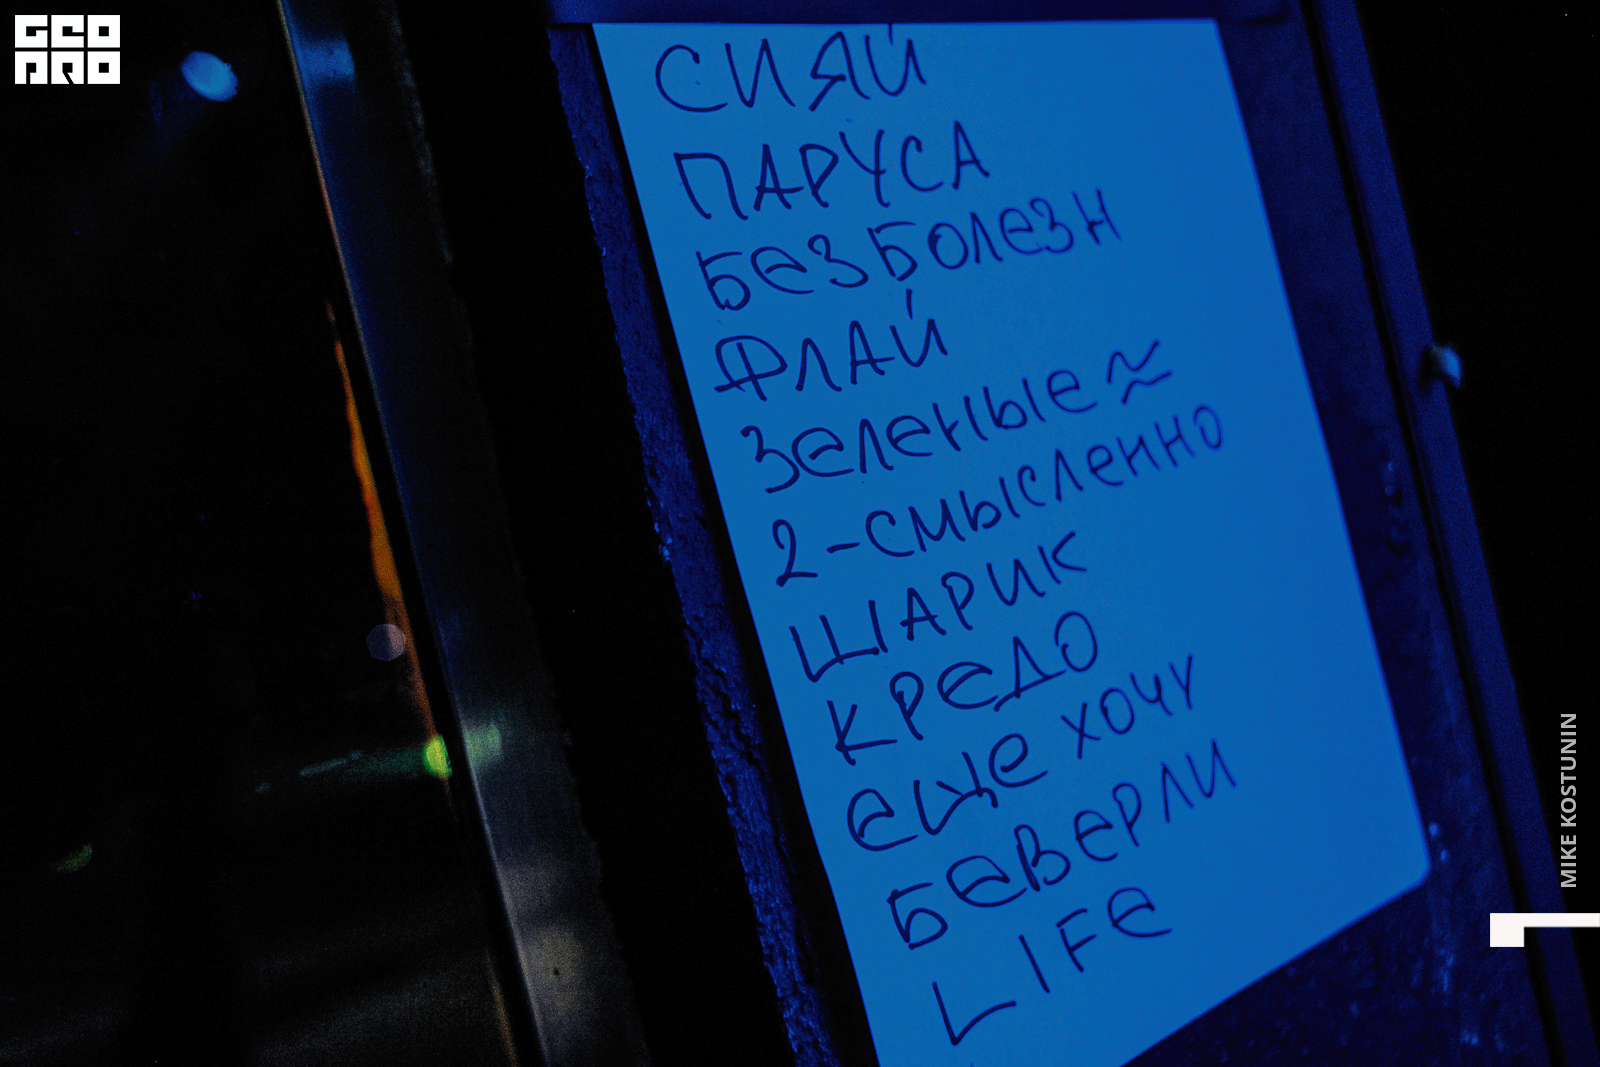 GEO
PRO
СИЯЙ
ПАРУСА
БЕЗ БОЛЕЗН
ФЛАЙ
ЗЕЛЕНЫЕ ≈
2-СМЫСЛЕННО
ШАРИК
КРЕДО
ЕЩЕ ХОЧУ
БЕВЕРЛИ
LIFE
MIKE KOSTUNIN